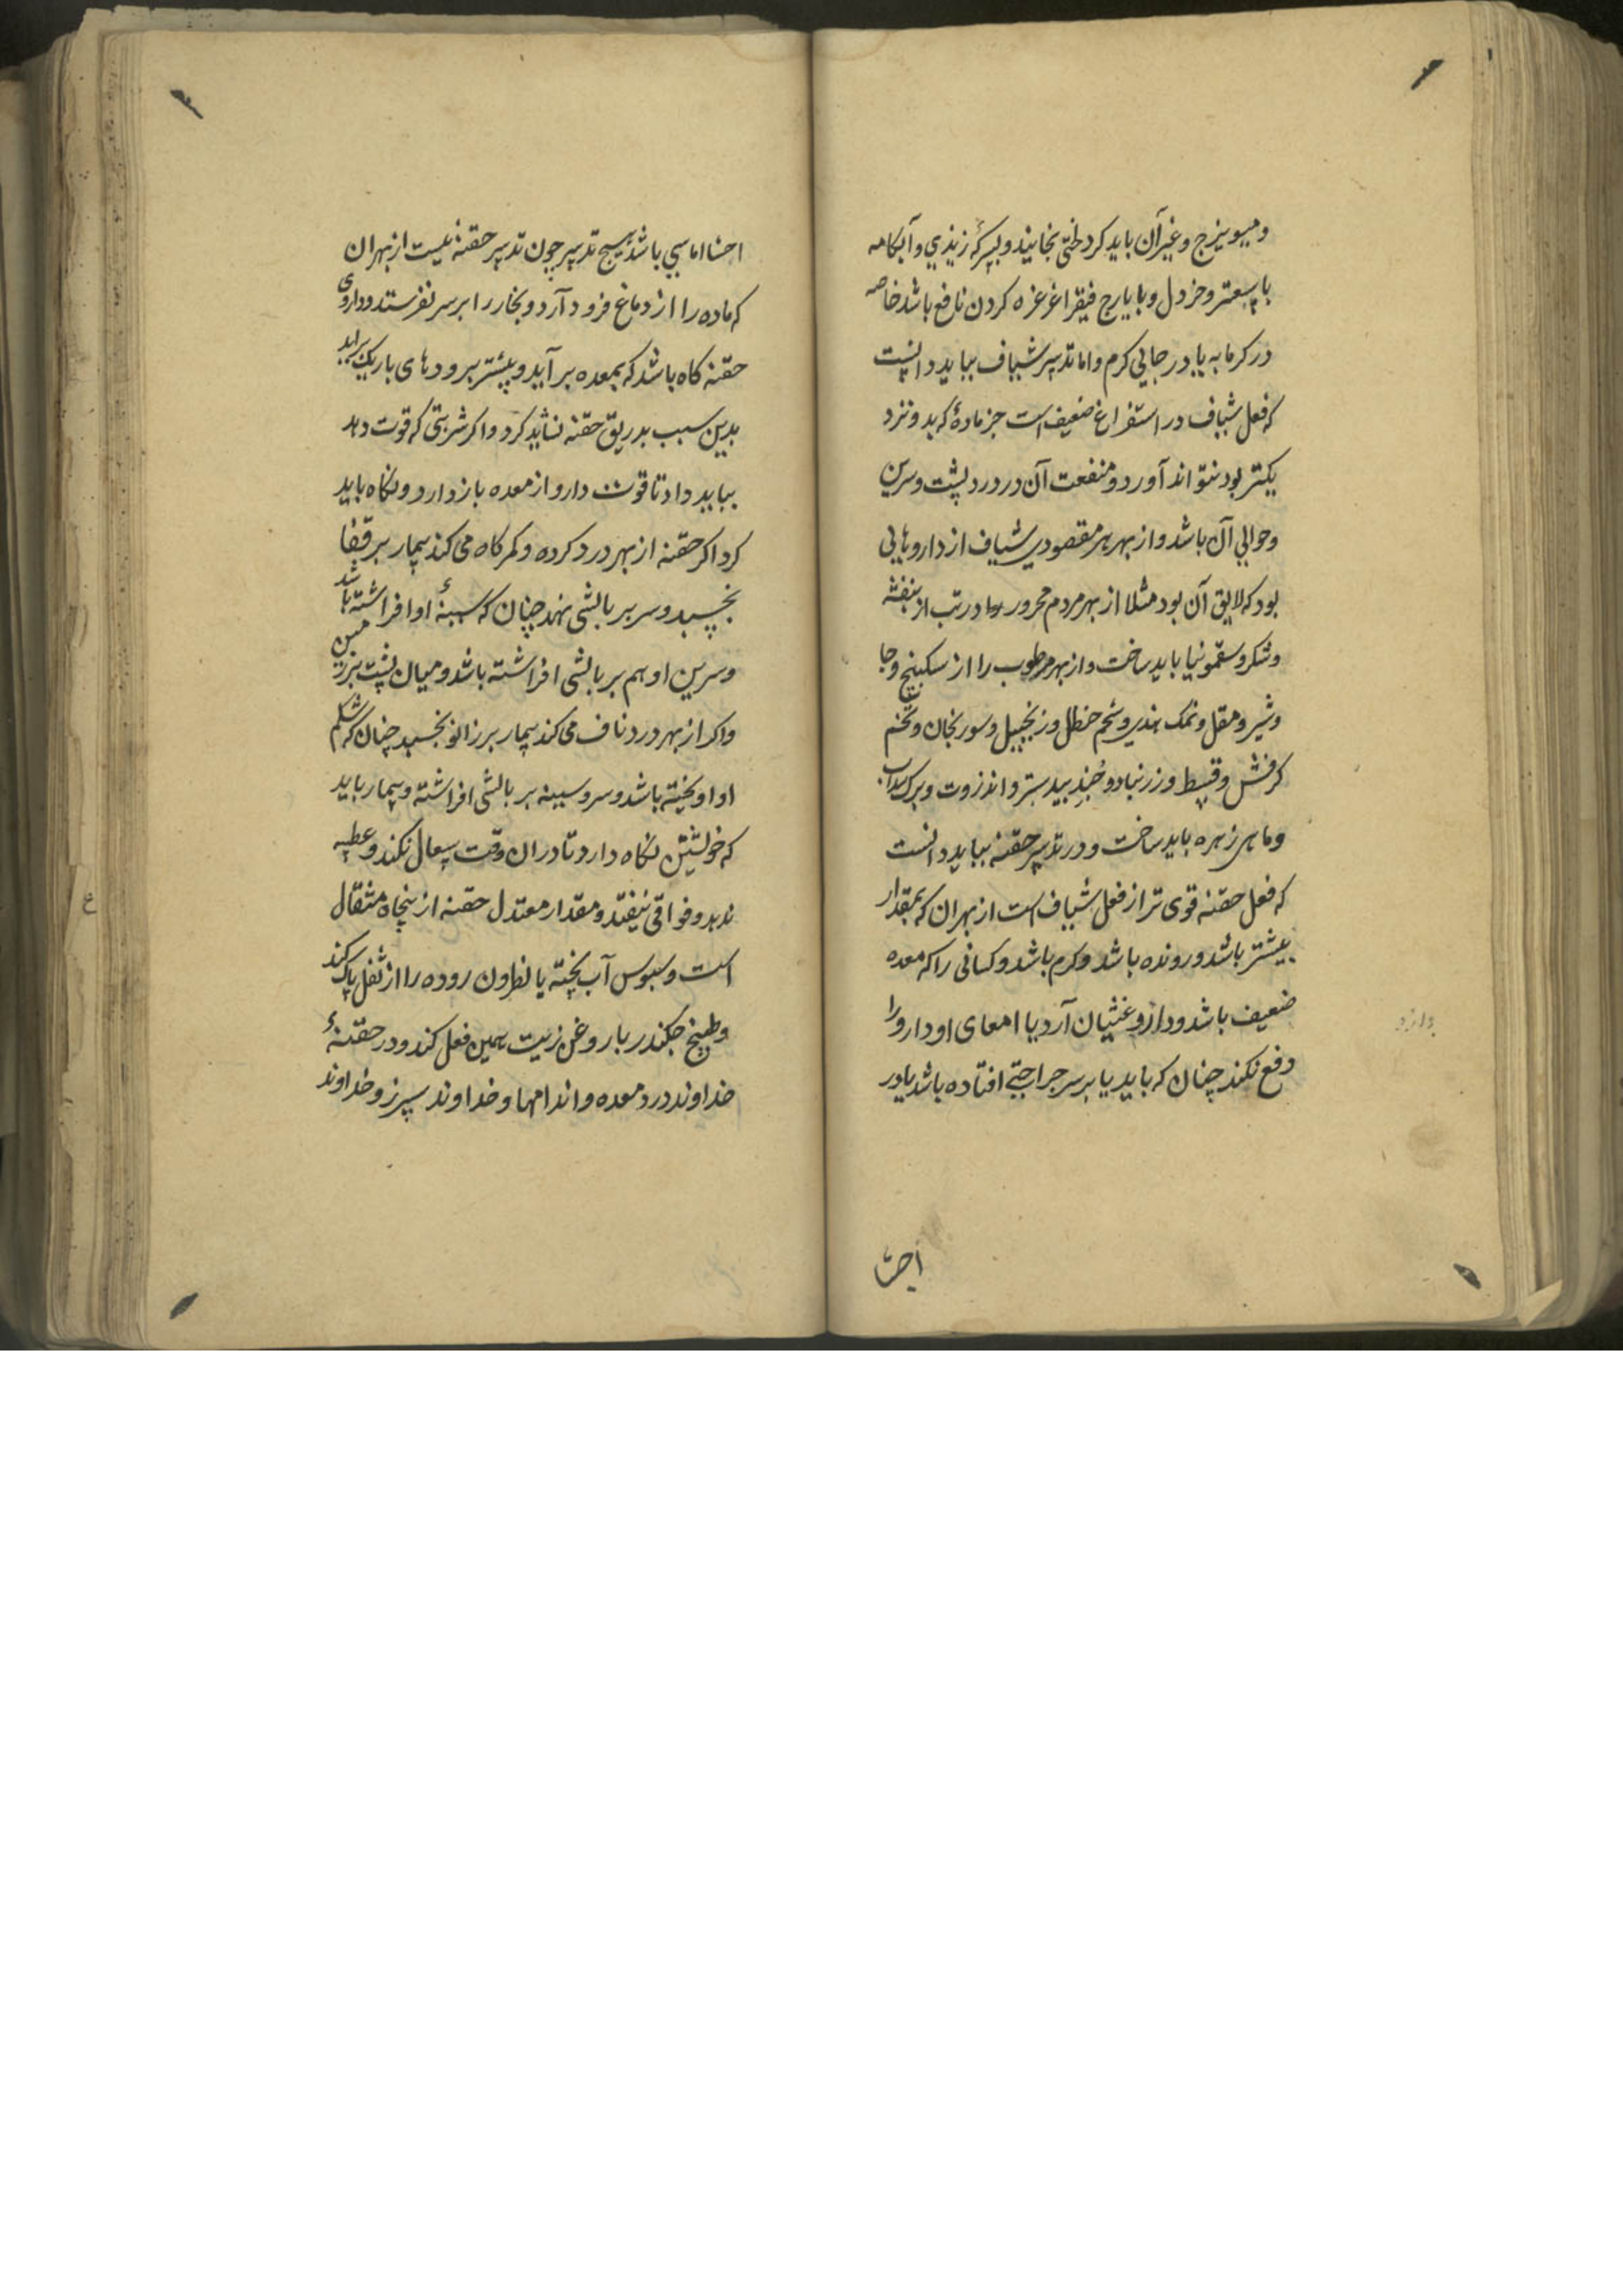 و میویزج و غیر آن باید کرد لختی بخایند و بسرکه زیذی و آبکامه
با سعتر و خردل و با یارج فیقرا غرغره کردن نافع باشد خاصه
در کرمابه یا در جایی کرم و اما تدبیر شیاف بباید دانست
که فعل شیاف در استفراغ ضعیف است جز مادهٔ که بدو نزد
یکتر بود نتواند آورد و منفعت آن در درد پشت و سرین
و حوالی آن باشد و از بهر هر مقصودی شیاف از داروهایی
بود که لایق آن بود مثلا از بهر مردم محرور و در تب از بنفشه
و شکر و سقمونیا باید ساخت و از بهر مرطوب را از سکبینج و جا
و شیر و مقل و نمک هندی و شحم حنظل و زنجبیل و سورنجان و تخم
کرفش و قسط و زرنباد و خبذ بیدستر و انزروت و برک سداب
و ماهی زهره باید ساخت و در تدبیر حقنه بباید دانست
که فعل حقنه قوی تر از فعل شیاف است از بهر ان که بمقدار
بیشتر باشد و رونده باشد و کرم باشد و کسانی را که معده
ضعیف باشد و دارو غثیان آرد یا امعای او دارو را
دفع نکند چنان که باید یا بر سر جراحتی افتاده باشد یا در
احشا
احشا اماسی باشد هیچ تدبیر چون تدبیر حقنه نیست از بهر ان
که ماده را از دماغ فرود آرد و بخار را بر سر نفرستد و داروی
حقنه کاه باشد که بمعده بر آید و بیشتر برودهای باریک براید
بدین سبب بدریق حقنه نشاید کرد و اکر شربتی که قوت دهد
بباید داد تا قوت دارو از معده باز دارد و نکاه باید
کرد اکر حقنه از بهر درد کرده و کمرکاه می کند بیمار بر قفا
بخسبد و سر بر بالشی نهد چنان که سینهٔ او افراشته باشد
و سرین او هم بر بالشی افراشته باشد و میان پشت بر زمین
و اکر از بهر درد ناف می کند بیمار بر زانو بخسبد چنان که شکم
او اویخته باشد و سر و سینه بر بالشی افراشته و بیمار باید
که خویشتن نکاه دارد تا در ان وقت سعال نکند و عطسه
ندهد و فواقی نیفتد و مقدار معتدل حقنه از پنجاه مثقال
است و سبوس آب پخته یا نطرون روده را از ثفل پاک کند
و طبیخ چکندر با روغن زیت همین فعل کند و در حقنهٔ
خداوند درد معده و اندامها و خداوند سپرز و خداوند